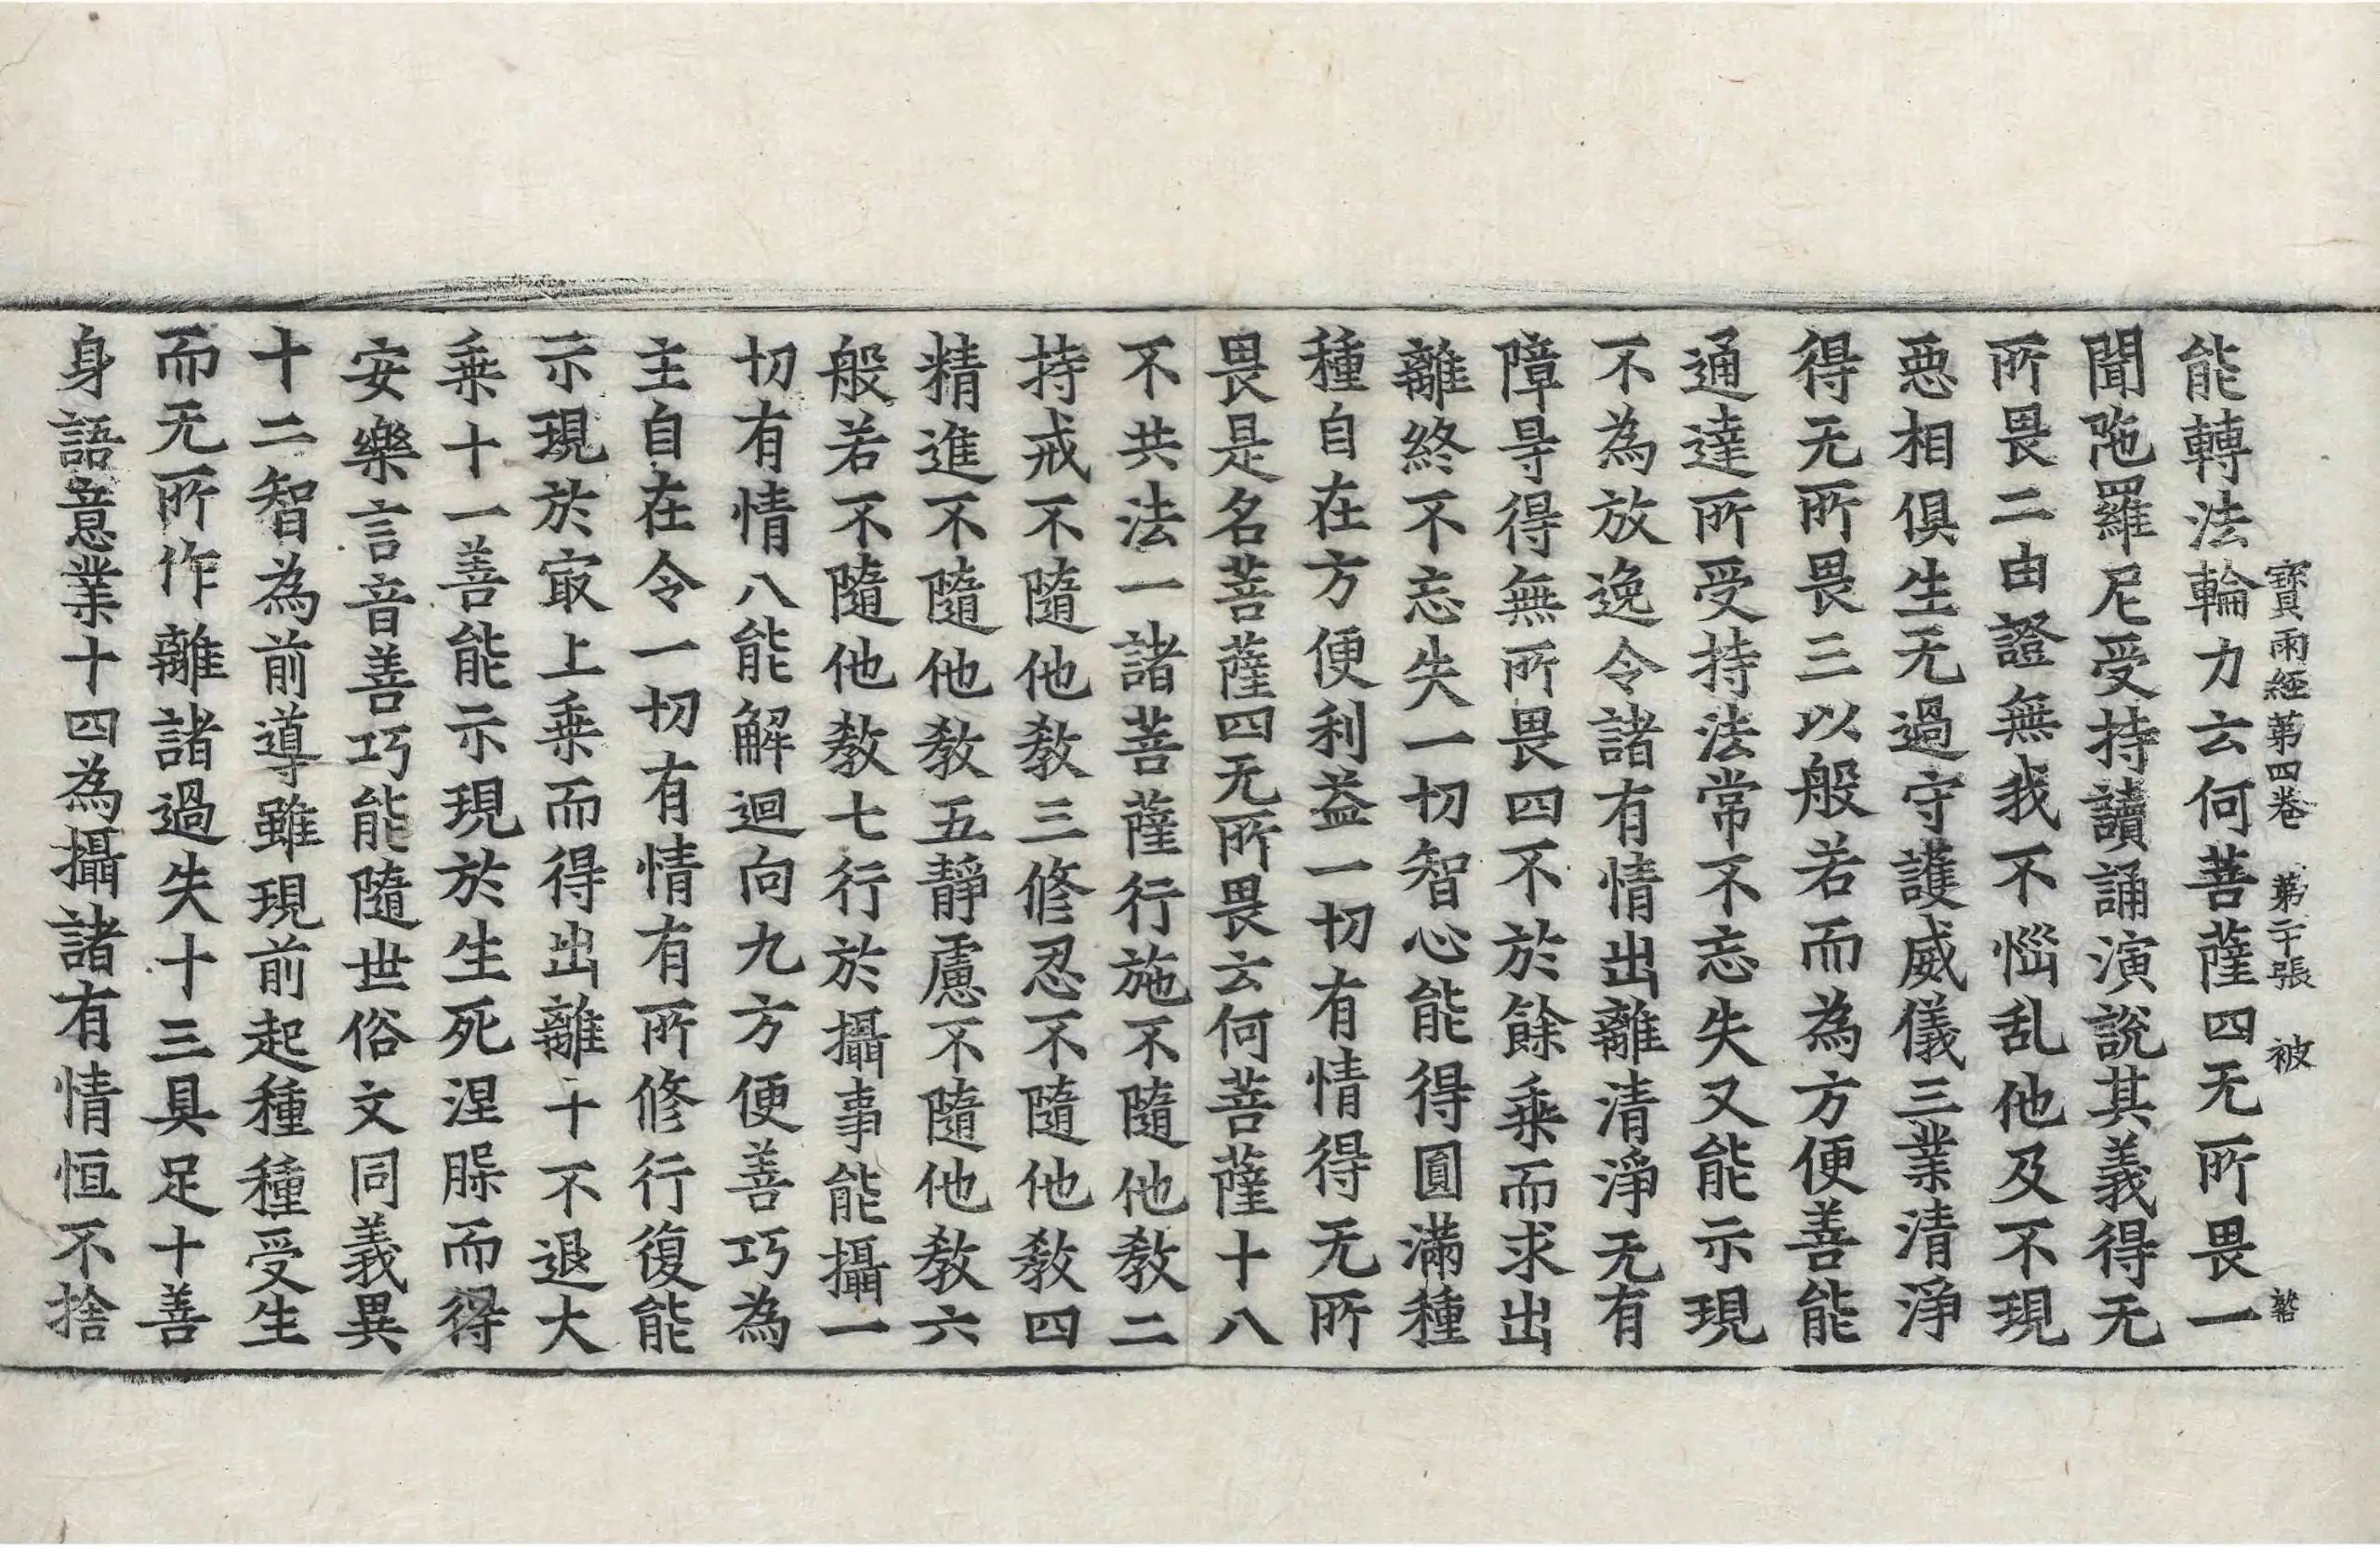 寶雨經第四卷 第二十張 被
能轉法輪力云何菩薩四无所畏一
聞陁羅尼受持讀誦演說其義得无
所畏二由證無我不惱乱他及不現
惡相俱生无過守護威儀三業清淨
得无所畏三以般若而為方便善能
通達所受持法常不忘失又能示現
不為放逸令諸有情出離清淨无有
障㝵得無所畏四不於餘乗而求出
離終不忘失一切智心能得圓滿種
種自在方便利益一切有情得无所
畏是名菩薩四无所畏云何菩薩十八
不共法一諸菩薩行施不隨他教二
持戒不隨他教三修忍不隨他教四
精進不隨他教五靜慮不隨他教六
般若不隨他教七行於攝事能攝一
切有情八能解迴向九方便善巧為
主自在令一切有情有所修行復能
示現於㝡上乗而得出離十不退大
乗十一善能示現於生死涅槃而得
安樂言音善巧能隨世俗文同義異
十二智為前導雖現前起種種受生
而无所作離諸過失十三具足十善
身語意業十四為攝諸有情恒不捨